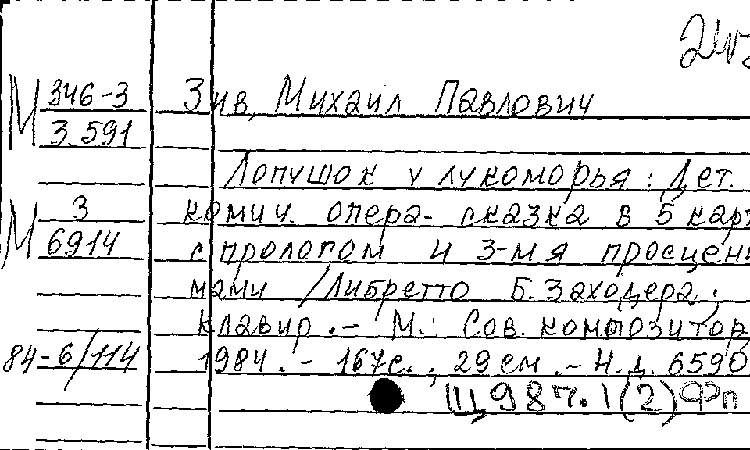 М 346-3
3 591
Зив, Михаил Павлович
Лопушок у лукоморья: Дет.
комич. опера-сказка в 5 карт
М 3
6914
с прологом и 3-мя просцени
мами /Либретто Б. Заходера;
клавир.- М.: Сов. композитор
84-6/114
1984.- 167с.; 29см.- Н.д. 6590
Щ987.1(2)Фп